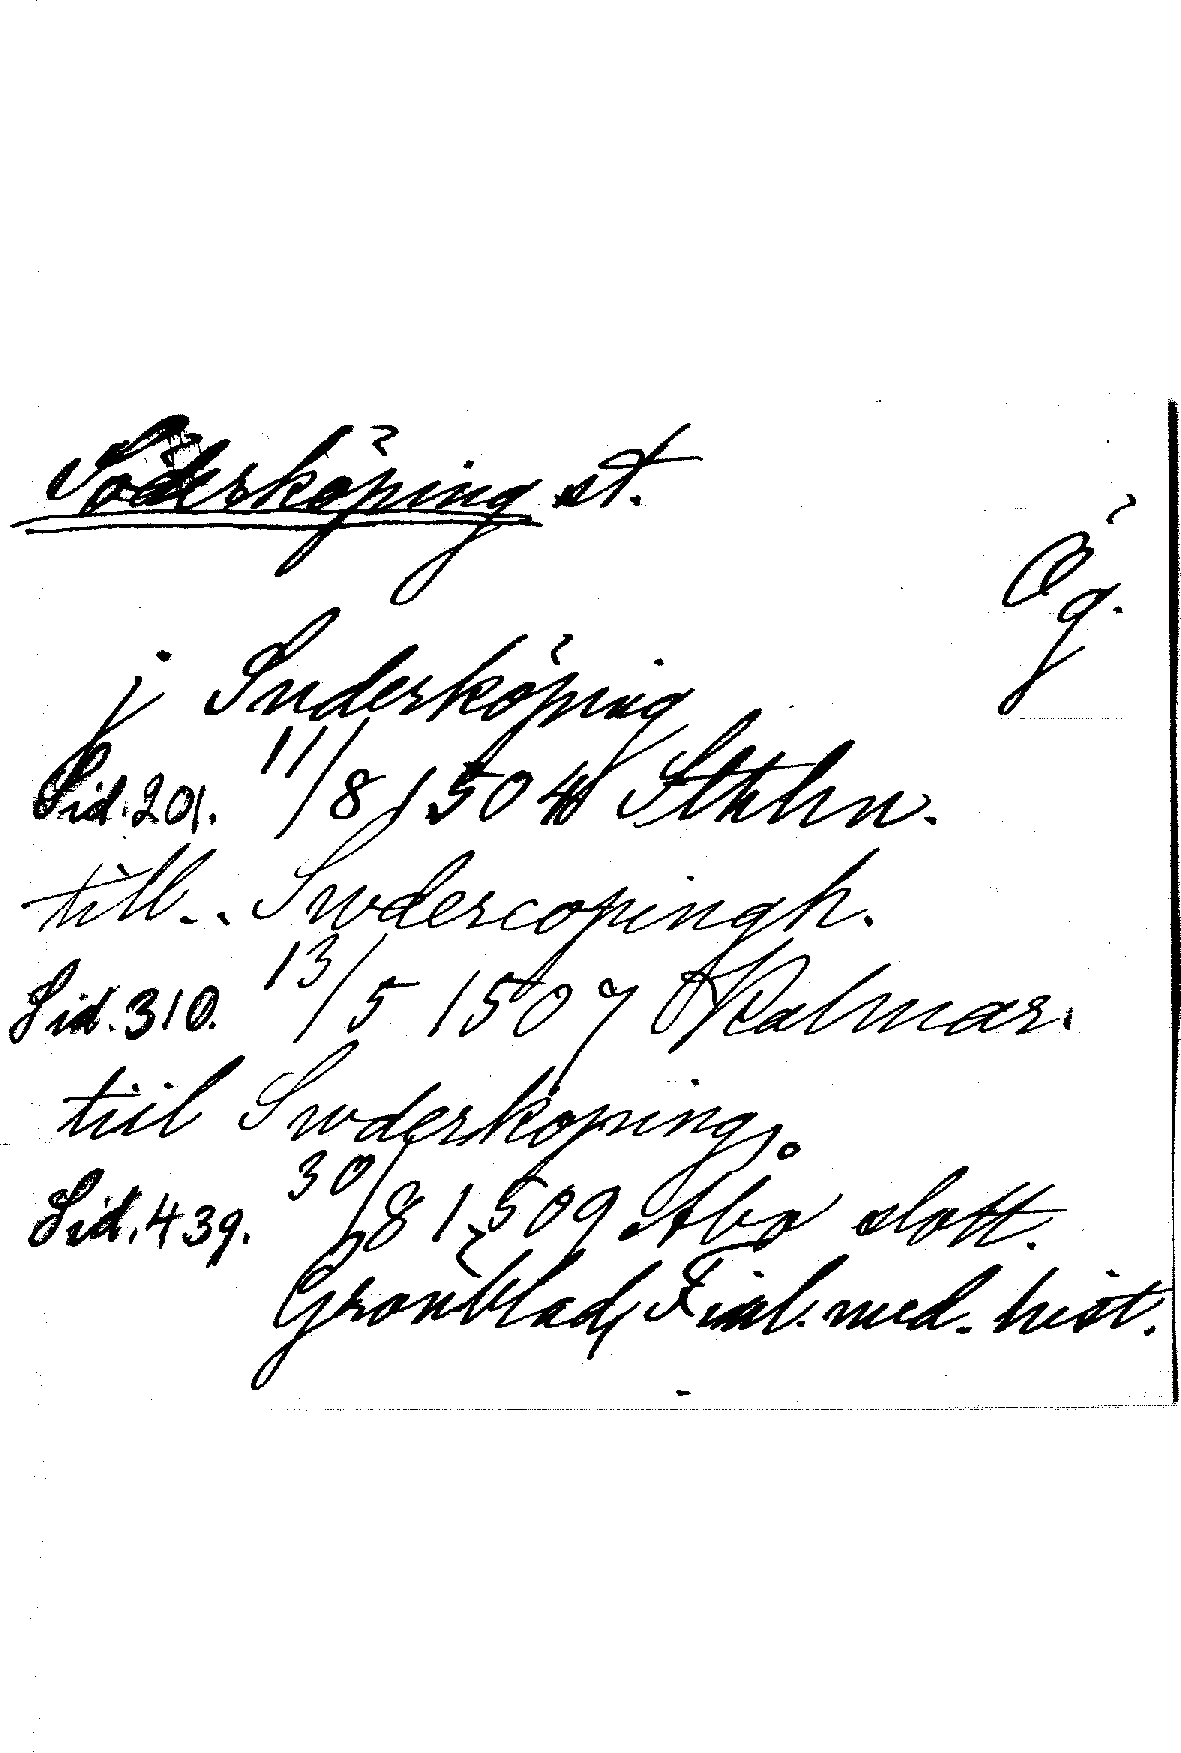 Söderköping st.
Ög.
j Suderköping
Sid. 201. 11/8 1504 Sthlm.
till.. Swdercopingh.
Sid. 310. 13/5 1507 Kalmar.
tiil Swderköping.
Sid. 439. 30/8 1509 Åbo slott.
Grönblad, Finl. med. hist.